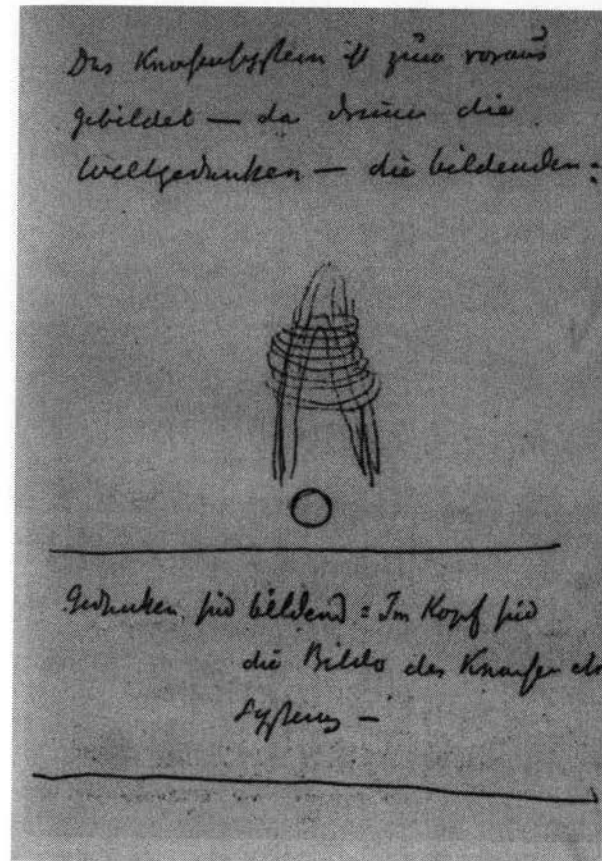 Das Knochensystem ist zum voraus
gebildet — da drinnen die
Weltgedanken — die bildenden:
Gedanken sind bildend = Im Kopf sind
die Bilder des Knochen
Systems —